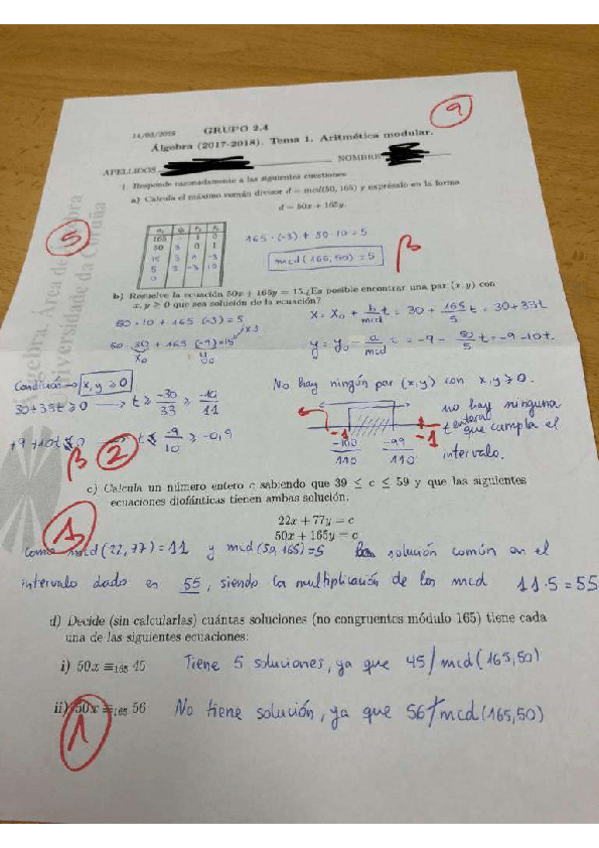 9
14/03/2018 GRUPO 2.4
Álgebra (2017-2018). Tema 1. Aritmética modular.
APELLIDOS NOMBRE
1. Responde razonadamente a las siguientes cuestiones
a) Calcula el máximo común divisor d = mcd(50, 165) y exprésalo en la forma
d = 50x + 165y.
5
165 1 0
50 3 0 1
15 3 1 -3
5 3 -3 10
0
165·(-3) + 50·10 = 5
mcd(165,50) = 5
b) Resuelve la ecuación 50x + 165y = 15. ¿Es posible encontrar una par (x, y) con
x, y ≥ 0 que sea solución de la ecuación?
50·10 + 165(-3) = 5
x3
50·30 + 165(-9) = 15
x0 y0
x = x0 + b/mcd t = 30 + 165/5 t = 30 + 33t
y = y0 - a/mcd t = -9 - 50/5 t = -9 - 10t.
Condición → x, y ≥ 0
30+33t ≥ 0 → t ≥ -30/33 ≥ -10/11
+9+10t ≤ 0 → t ≤ -9/10 ≥ -0,9
2
No hay ningún par (x,y) con x,y ≥ 0.
-1 -1
-100/110 -99/110
no hay ninguna
t entera
que cumpla el
intervalo.
c) Calcula un número entero c sabiendo que 39 ≤ c ≤ 59 y que las siguientes
ecuaciones diofánticas tienen ambas solución.
22x + 77y = c
50x + 165y = c
1
Como mcd(22,77)=11 y mcd(50,165)=5 la solución común en el
intervalo dado es 55, siendo la multiplicación de los mcd 11·5=55
d) Decide (sin calcularlas) cuántas soluciones (no congruentes módulo 165) tiene cada
una de las siguientes ecuaciones:
i) 50x ≡165 45 Tiene 5 soluciones, ya que 45/mcd(165,50)
ii) 50x ≡165 56 No tiene solución, ya que 56∤mcd(165,50)
1
Álgebra. Área de Álgebra
Universidade da Coruña